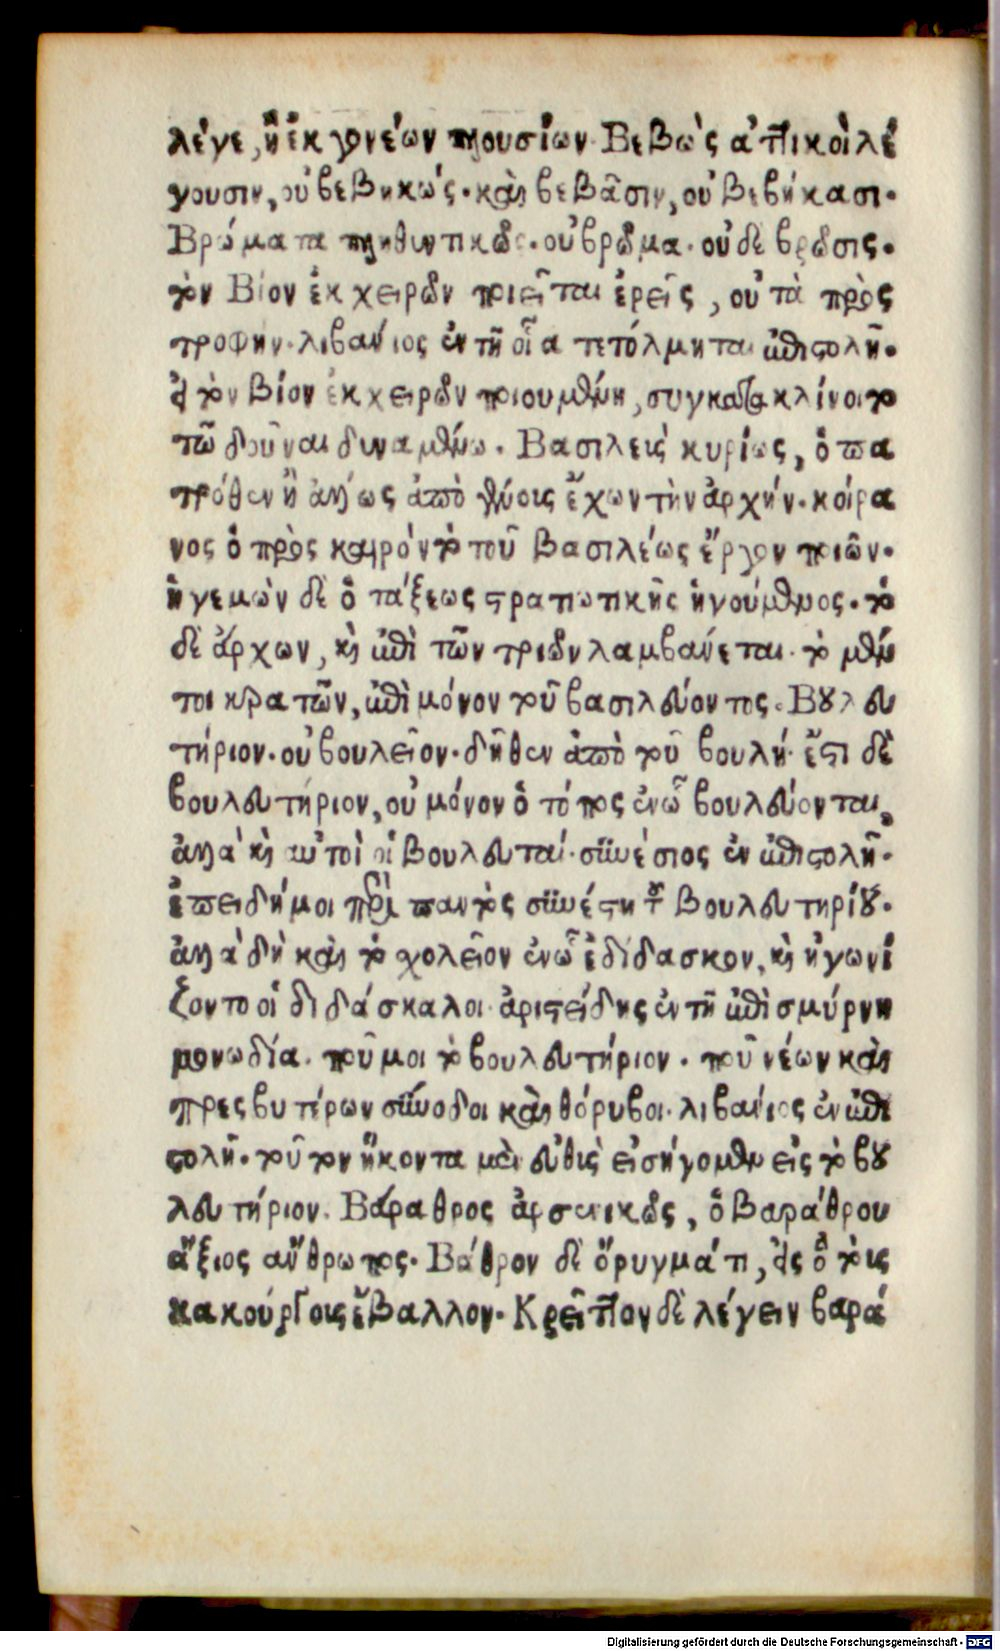 λέγε, ἢ ἐκ γονέων πλουσίων. Βεβὼς ἀττικοὶ λέ
γουσιν, οὐ βεβηκώς. καὶ βεβᾶσιν, οὐ βεβήκασι.
Βρώματα πληθυντικῶς. οὐ βρῶμα. οὐδὲ βρῶσις.
τὸν Βίον ἐκ χειρῶν ποιεῖται ἐρεῖς, οὐ τὰ πρὸς
τροφήν. λιβανίος ἐν τῆ οἷα τετόλμηται ἐπιστολῆ.
ὁ τὸν βίον ἐκ χειρῶν ποιουμένη, συγκατακλίνοιτο
τῶ δοῦναι δυναμένω. Βασιλεὶς κυρίως, ὁ πα
τρόθεν ἢ ἄλλως ἀπὸ γένοις ἔχων τὴν ἀρχήν. κοίρα
νος ὁ πρὸς καιρόν τὸ τοῦ βασιλέως ἔργον ποιῶν.
ἡγεμὼν δὲ ὁ τάξεως στρατιωτικῆς ἡγούμενος. τὸ
δὲ ἄρχων, καὶ ἐπὶ τῶν τριῶν λαμβάνεται. τὸ μέν
τοι κρατῶν, ἐπὶ μόνον τοῦ βασιλεύοντος. Βουλευ
τήριον. οὐ βουλεῖον. δῆθεν ἀπὸ τοῦ βουλή. ἔστι δὲ
βουλευτήριον, οὐ μόνον ὁ τόπος ἐνῶ βουλεύονται,
ἀλλὰ καὶ αὐτοὶ οἱ βουλευταί. συνέσιος ἐν ἐπιστολῆ.
ἐπειδήμοι περὶ παντὸς συνέστη τοῦ βουλευτηρίου.
ἀλλὰ δὴ καὶ τὸ σχολεῖον ἐνῶ ἐδίδασκον, καὶ ἠγωνί
ζοντο οἱ διδάσκαλοι. ἀριστείδης ἐν τῆ ἐπὶ σμύρνη
μονωδία. ποῦ μοι τὸ βουλευτήριον. ποῦ νέων καὶ
πρεσβυτέρων σύνοδοι καὶ θόρυβοι. λιβανίος ἐν ἐπι
στολῆ. τοῦτον ἥκοντα μὲν εὐθὶς εἰσήγομεν εἰς τὸ βου
λευτήριον. Βάραθρος ἀρσενικῶς, ὁ βαράθρου
ἄξιος ἄνθρωπος. Βάθρον δὲ ὄρυγμά τι, εἰς ὃ τοὶς
κακούργοις ἔβαλλον. Κρεῖττον δὲ λέγειν βαρά
Digitalisierung gefördert durch die Deutsche Forschungsgemeinschaft - DFG